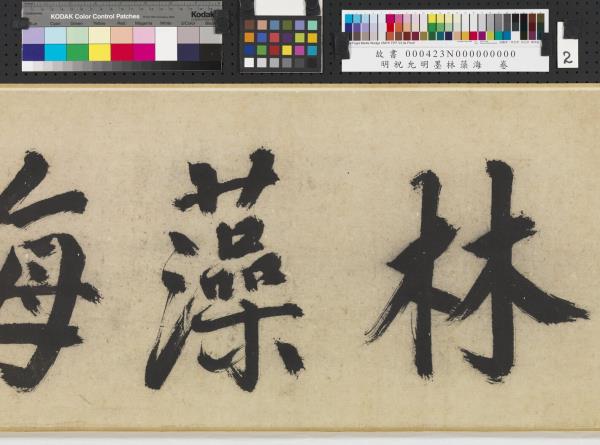 KODAK Color Control Patches
Kodak
故書 000423N000000000
明祝允明墨林藻海 卷
2
林藻海